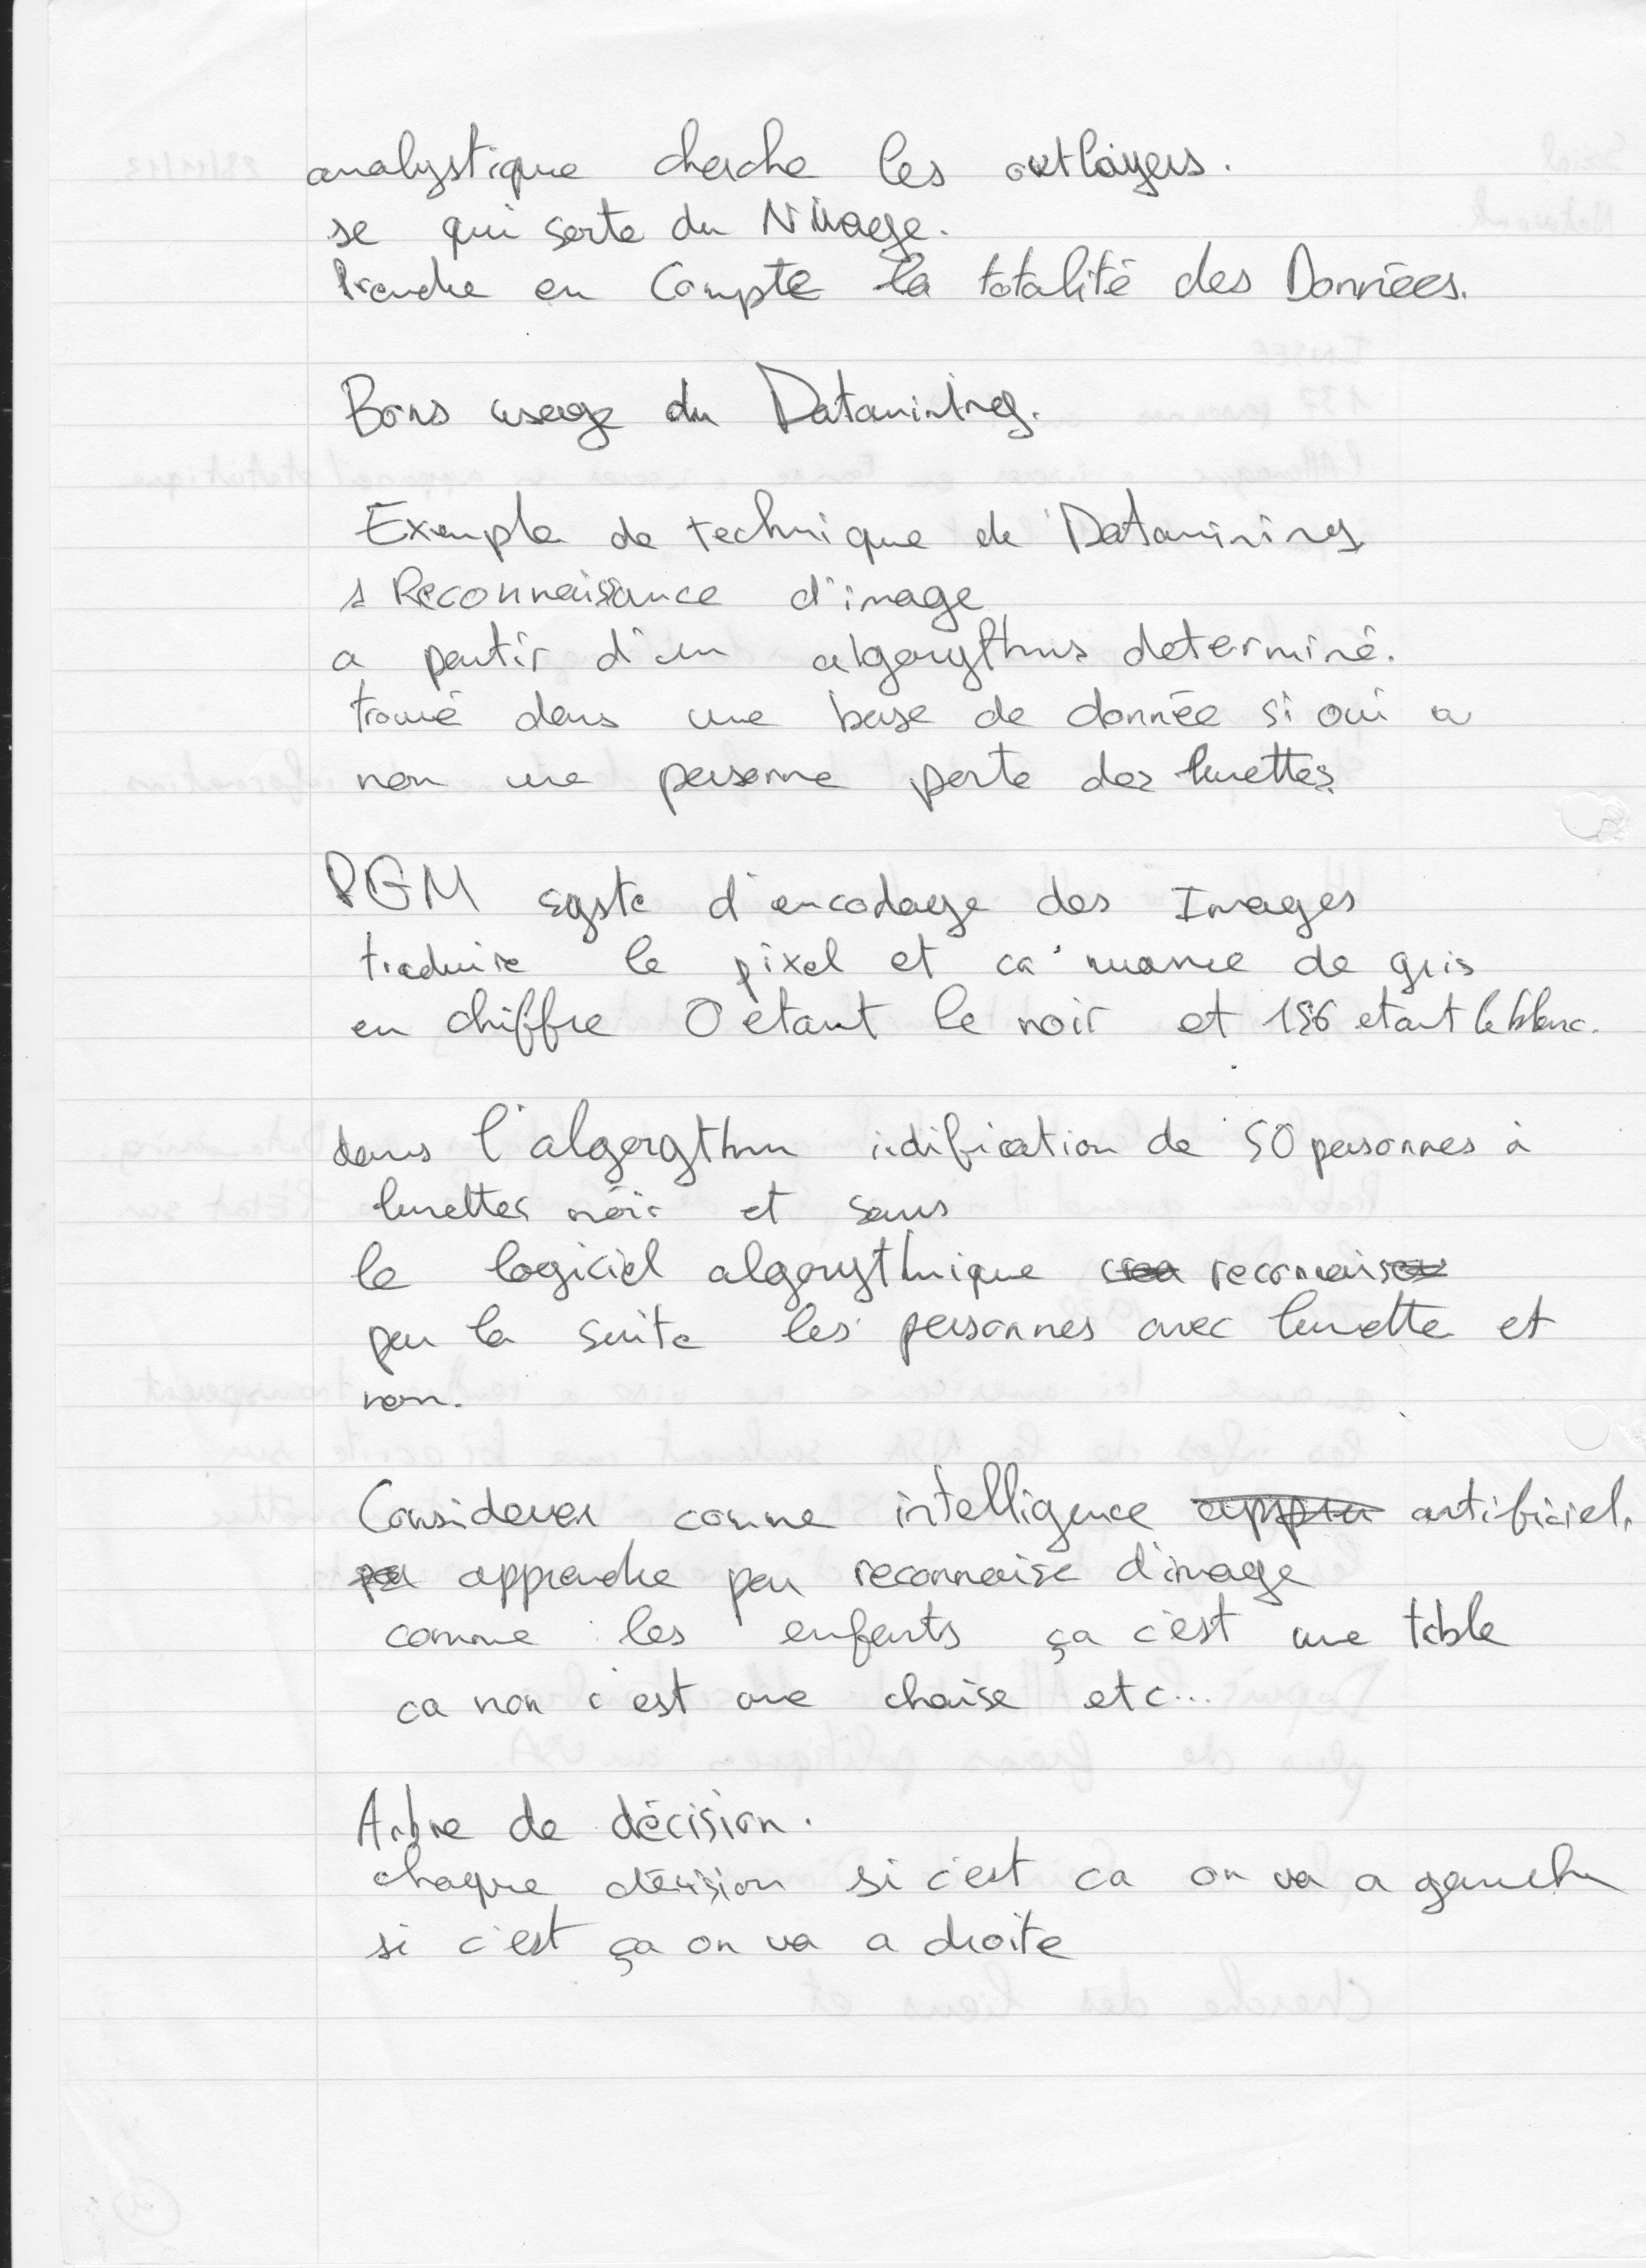 analystique cherche les outlayers.
se qui sorte du Nuage.
Prendre en Compte la totalité des Données.
Bons usage du Datamining.
Exemple de technique de Datamining
1 Reconnaissance d'image
a partir d'un algorythms determiné.
trouvé dans une base de donnée si oui a
non une personne porte des lunettes
PGM syste d'encodage des Images
traduire le pixel et ca nuance de gris
en chiffre 0 etant le noir et 156 etant le blanc.
dans l'algorythm idification de 50 personnes à
lunettes noir et sans
le logiciel algorythmique reconnais
par la suite les personnes avec lunette et
non.
Considerer comme intelligence artificiel.
apprendre par reconnaise d'image
comme les enfants ça c'est une table
ca non c'est une chaise etc...
Arbre de décision.
chaque décision si c'est ca on va a gauche
si c'est ça on va a droite